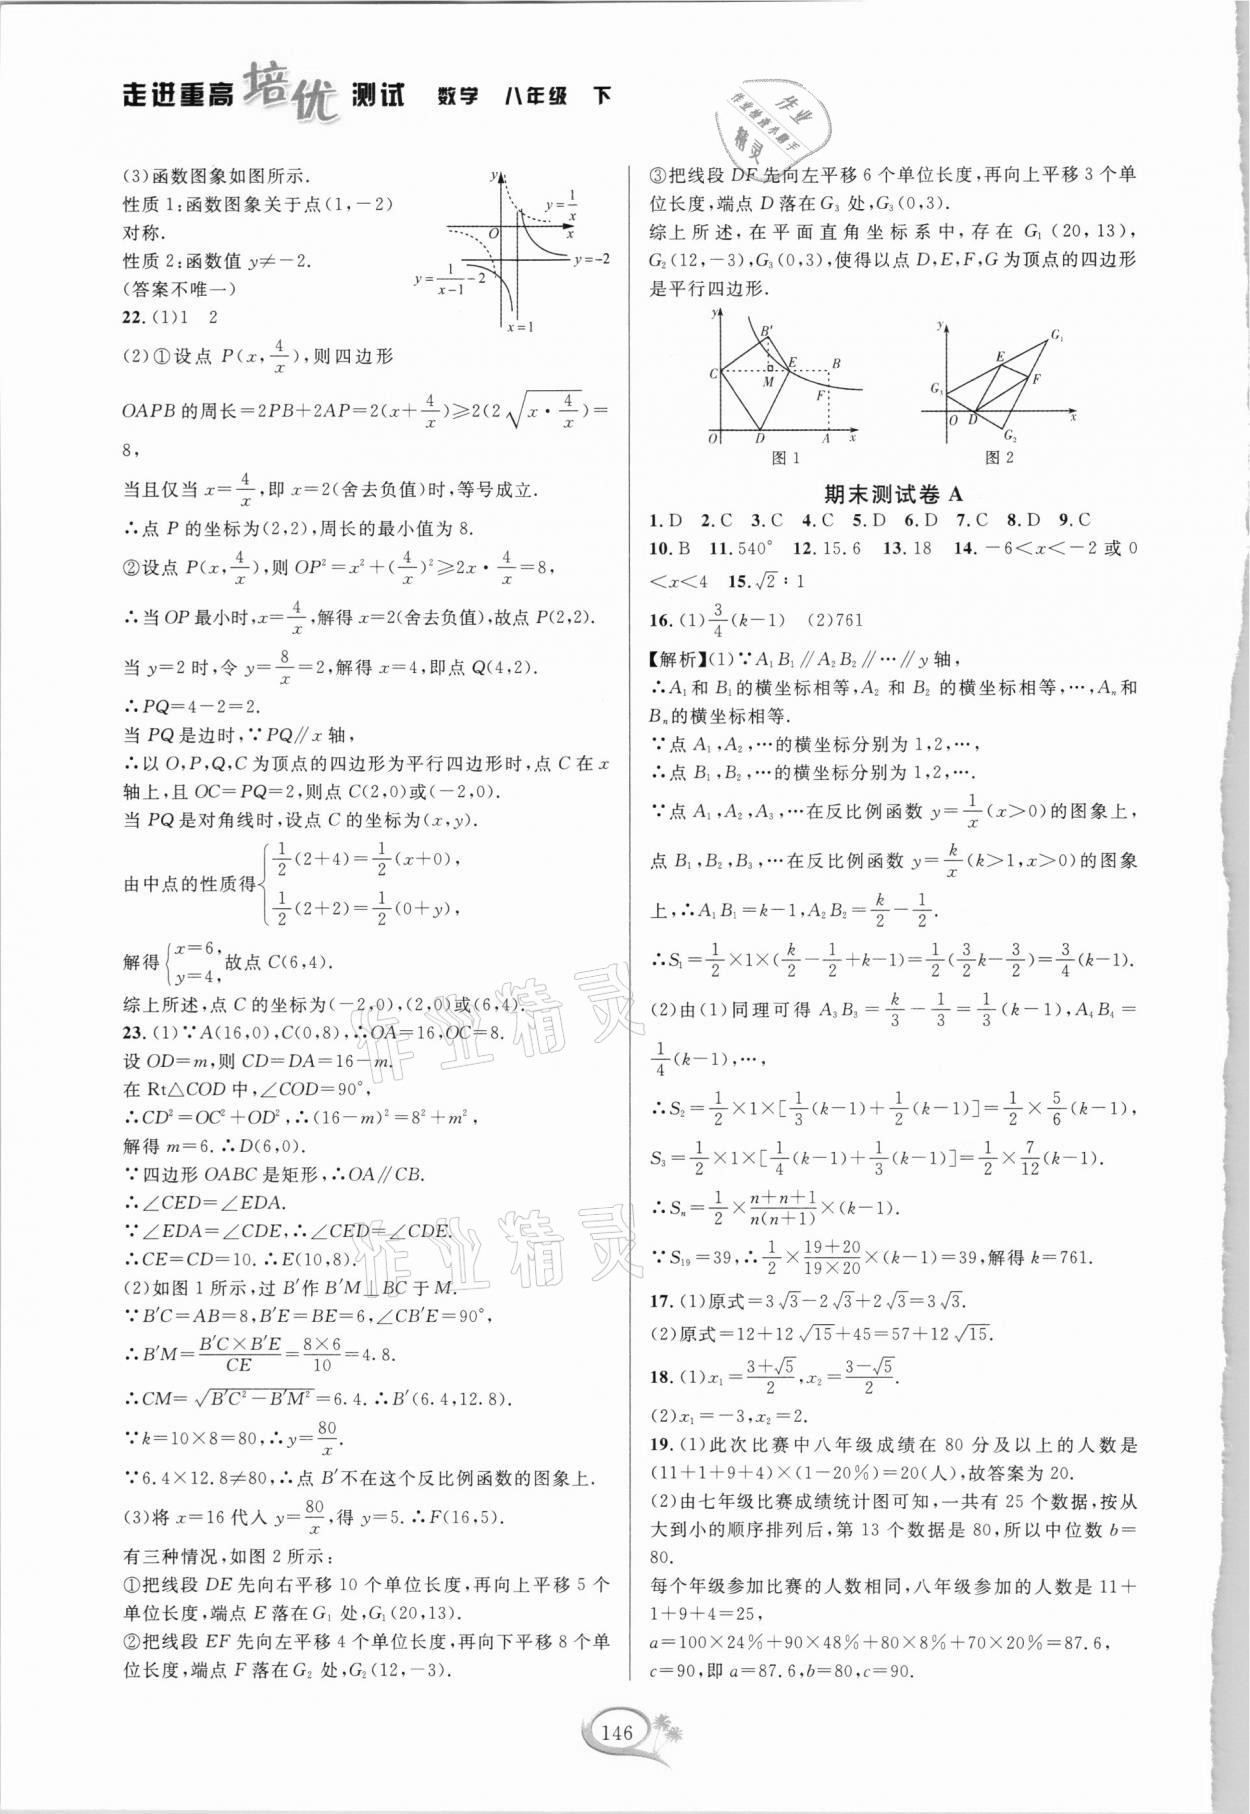 走进重高 培优 测试 数学 八年级 下
作业
作业检查小助手
精灵
(3)函数图象如图所示.
性质1:函数图象关于点(1,-2)
对称.
性质2:函数值 y≠-2.
(答案不唯一)
y
y=1/x
O
x
y=-2
y=1/(x-1)-2
x=1
22.(1)1 2
(2)①设点 P(x,4/x),则四边形
OAPB的周长=2PB+2AP=2(x+4/x)≥2(2√(x·4/x))=
8,
当且仅当 x=4/x,即 x=2(舍去负值)时,等号成立.
∴点 P 的坐标为(2,2),周长的最小值为 8.
②设点 P(x,4/x),则 OP²=x²+(4/x)²≥2x·4/x=8,
∴当 OP 最小时,x=4/x,解得 x=2(舍去负值),故点 P(2,2).
当 y=2 时,令 y=8/x=2,解得 x=4,即点 Q(4,2).
∴PQ=4-2=2.
当 PQ 是边时,∵PQ∥x 轴,
∴以 O,P,Q,C 为顶点的四边形为平行四边形时,点 C 在 x
轴上,且 OC=PQ=2,则点 C(2,0)或(-2,0).
当 PQ 是对角线时,设点 C 的坐标为(x,y).
由中点的性质得{1/2(2+4)=1/2(x+0),
1/2(2+2)=1/2(0+y),
解得{x=6,
y=4,故点 C(6,4).
综上所述,点 C 的坐标为(-2,0),(2,0)或(6,4).
23.(1)∵A(16,0),C(0,8),∴OA=16,OC=8.
设 OD=m,则 CD=DA=16-m.
在 Rt△COD 中,∠COD=90°,
∴CD²=OC²+OD²,∴(16-m)²=8²+m²,
解得 m=6.∴D(6,0).
∵四边形 OABC 是矩形,∴OA∥CB.
∴∠CED=∠EDA.
∵∠EDA=∠CDE,∴∠CED=∠CDE.
∴CE=CD=10.∴E(10,8).
(2)如图 1 所示,过 B′作 B′M⊥BC 于 M.
∵B′C=AB=8,B′E=BE=6,∠CB′E=90°,
∴B′M=(B′C×B′E)/CE=(8×6)/10=4.8.
∴CM=√(B′C²-B′M²)=6.4.∴B′(6.4,12.8).
∵k=10×8=80,∴y=80/x.
∵6.4×12.8≠80,∴点 B′不在这个反比例函数的图象上.
(3)将 x=16 代入 y=80/x,得 y=5.∴F(16,5).
有三种情况,如图 2 所示:
①把线段 DE 先向右平移 10 个单位长度,再向上平移 5 个
单位长度,端点 E 落在 G₁ 处,G₁(20,13).
②把线段 EF 先向左平移 4 个单位长度,再向下平移 8 个单
位长度,端点 F 落在 G₂ 处,G₂(12,-3).
③把线段 DF 先向左平移 6 个单位长度,再向上平移 3 个单
位长度,端点 D 落在 G₃ 处,G₃(0,3).
综上所述,在平面直角坐标系中,存在 G₁(20,13),
G₂(12,-3),G₃(0,3),使得以点 D,E,F,G 为顶点的四边形
是平行四边形.
y
B′
C
E
B
M
F
O
D
A
x
图 1
y
G₁
E
F
G₃
O
D
x
G₂
图 2
期末测试卷 A
1.D 2.C 3.C 4.C 5.D 6.D 7.C 8.D 9.C
10.B 11.540° 12.15.6 13.18 14.-6<x<-2 或 0
<x<4 15.√2∶1
16.(1)3/4(k-1) (2)761
【解析】(1)∵A₁B₁∥A₂B₂∥…∥y 轴,
∴A₁和 B₁的横坐标相等,A₂ 和 B₂ 的横坐标相等,…,Aₙ和
Bₙ的横坐标相等.
∵点 A₁,A₂,…的横坐标分别为 1,2,…,
∴点 B₁,B₂,…的横坐标分别为 1,2,….
∵点 A₁,A₂,A₃,…在反比例函数 y=1/x(x>0)的图象上,
点 B₁,B₂,B₃,…在反比例函数 y=k/x(k>1,x>0)的图象
上,∴A₁B₁=k-1,A₂B₂=k/2-1/2.
∴S₁=1/2×1×(k/2-1/2+k-1)=1/2(3/2k-3/2)=3/4(k-1).
(2)由(1)同理可得 A₃B₃=k/3-1/3=1/3(k-1),A₄B₄=
1/4(k-1),…,
∴S₂=1/2×1×[1/3(k-1)+1/2(k-1)]=1/2×5/6(k-1),
S₃=1/2×1×[1/4(k-1)+1/3(k-1)]=1/2×7/12(k-1).
∴Sₙ=1/2×(n+n+1)/(n(n+1))×(k-1).
∵S₁₉=39,∴1/2×(19+20)/(19×20)×(k-1)=39,解得 k=761.
17.(1)原式=3√3-2√3+2√3=3√3.
(2)原式=12+12√15+45=57+12√15.
18.(1)x₁=(3+√5)/2,x₂=(3-√5)/2.
(2)x₁=-3,x₂=2.
19.(1)此次比赛中八年级成绩在 80 分及以上的人数是
(11+1+9+4)×(1-20%)=20(人),故答案为 20.
(2)由七年级比赛成绩统计图可知,一共有 25 个数据,按从
大到小的顺序排列后,第 13 个数据是 80,所以中位数 b=
80.
每个年级参加比赛的人数相同,八年级参加的人数是 11+
1+9+4=25,
a=100×24%+90×48%+80×8%+70×20%=87.6,
c=90,即 a=87.6,b=80,c=90.
作业精灵
作业精灵
146